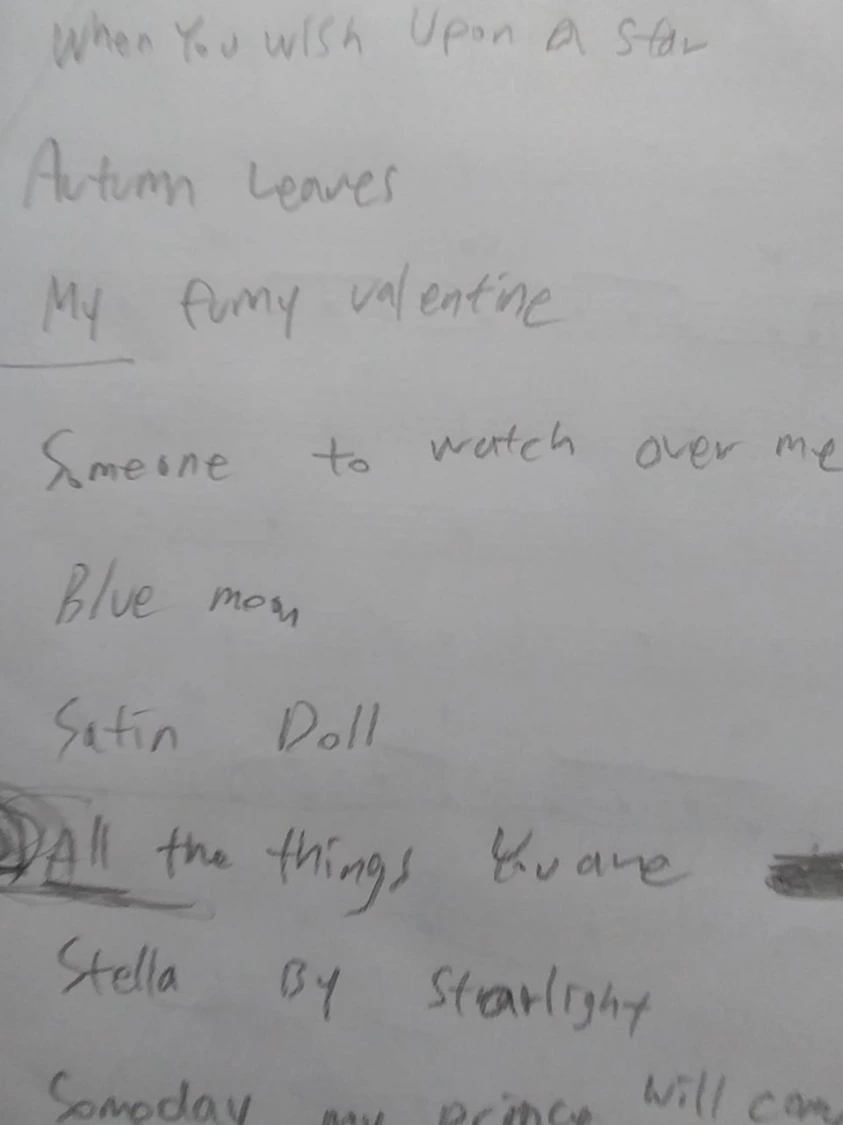 When You wish Upon a star
Autumn Leaves
My funny valentine
Someone to watch over me
Blue moon
Satin Doll
All the things You are
Stella By Starlight
Someday my prince will com